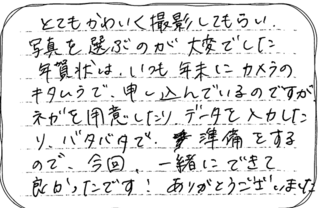 とてもかわいく撮影してもらい、
写真を選ぶのが大変でした
年賀状は、いつも年末にカメラの
キタムラで、申し込んでいるのですが、
ネガを用意したり、データを入力した
り、バタバタで、準備をする
ので、今回、一緒にできて
良かったです! ありがとうございました